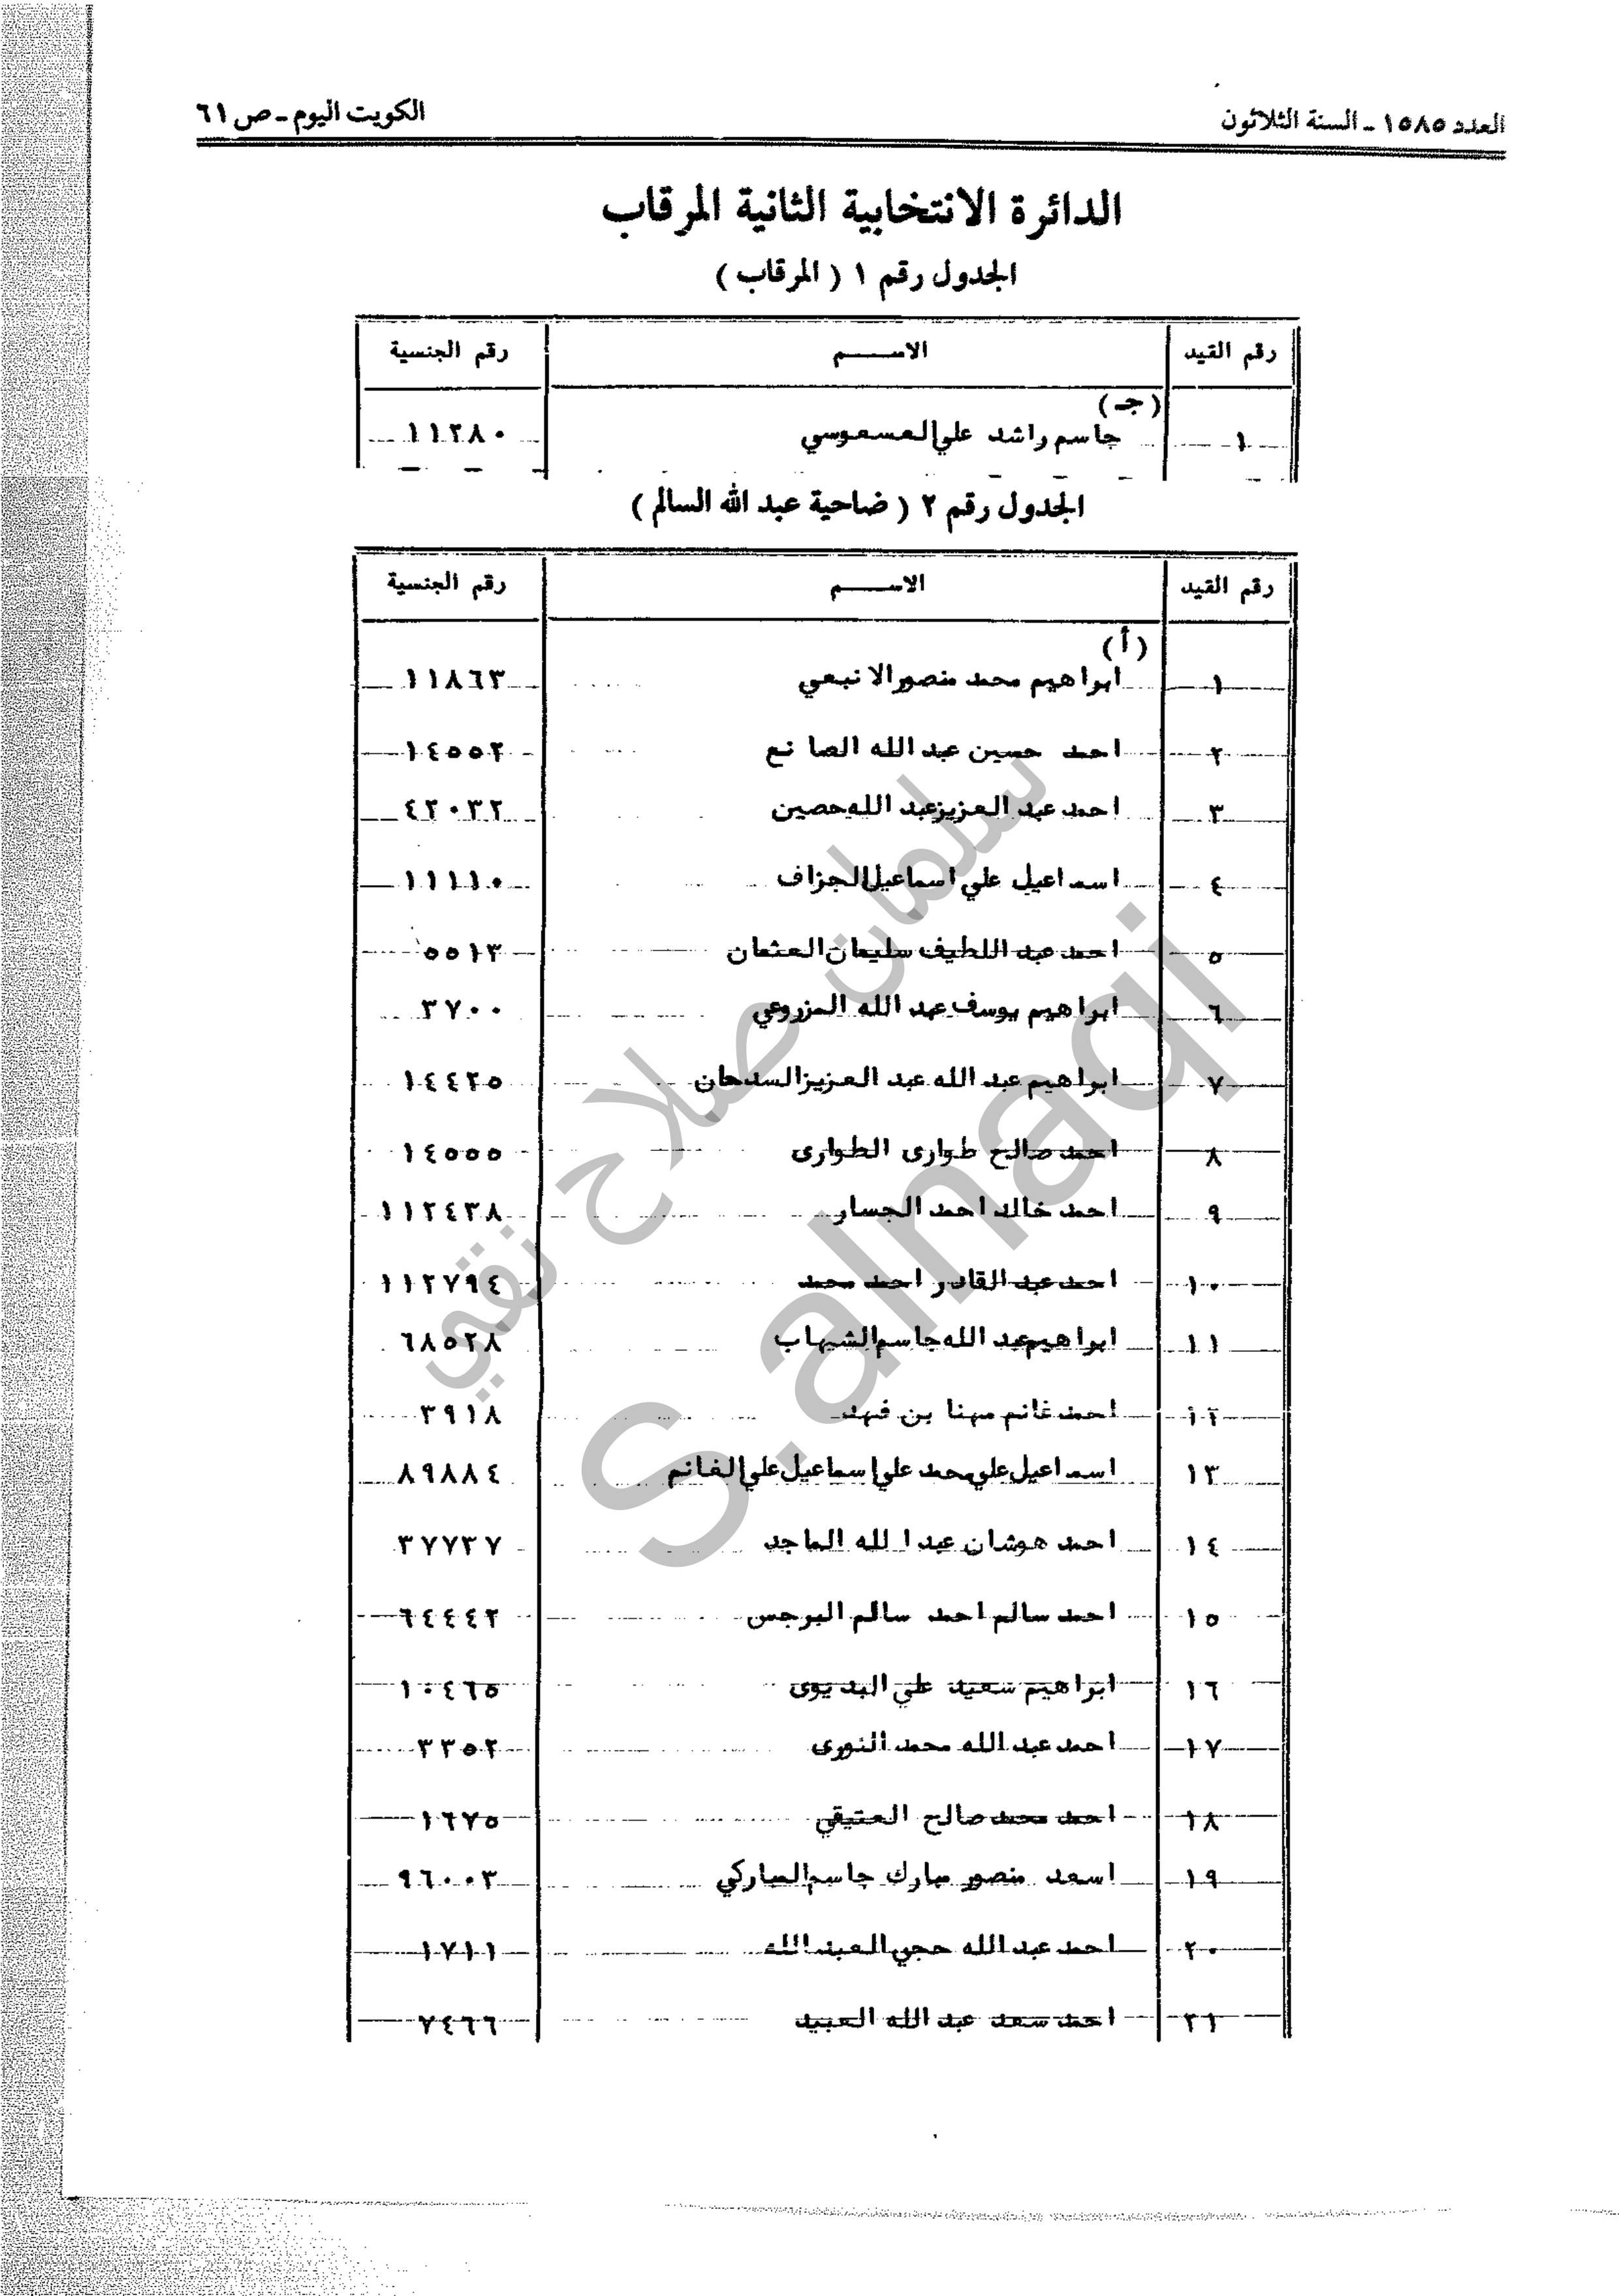 العدد ١٥٨٥ ـ السنة الثلاثون
الكويت اليوم ـ ص ٦١
الدائرة الانتخابية الثانية المرقاب
الجدول رقم ١ ( المرقاب )
رقم القيد الاســـــم رقم الجنسية
(جـ)
١ جاسم راشد علي العسعوسي ١١٢٨٠
الجدول رقم ٢ ( ضاحية عبد الله السالم )
رقم القيد الاســـــم رقم الجنسية
(أ)
١ ابراهيم محمد منصور الانبعي ١١٨٦٣
٢ احمد حسين عبد الله الصانع ١٤٥٥٢
٣ احمد عبد العزيز عبد الله حصين ٤٢٠٣٢
٤ اسماعيل علي اسماعيل الجزاف ١١١١٠
٥ احمد عبد اللطيف سليمان العثمان ٥٥١٣
٦ ابراهيم يوسف عبد الله المزروعي ٣٧٠٠
٧ ابراهيم عبد الله عبد العزيز السدحان ١٤٤٢٥
٨ احمد صالح طوارى الطوارى ١٤٥٥٥
٩ احمد خالد احمد الجسار ١١٢٤٣٨
١٠ احمد عبد القادر احمد محمد ١١٢٧٩٤
١١ ابراهيم عبد الله جاسم الشهاب ٦٨٥٢٨
١٢ احمد غانم مهنا بن فهد ٣٩١٨
١٣ اسماعيل علي محمد علي اسماعيل علي الغانم ٨٩٨٨٤
١٤ احمد هوشان عبد الله الماجد ٣٧٧٣٧
١٥ احمد سالم احمد سالم البرجس ٦٤٤٤٢
١٦ ابراهيم سعيد علي البديوى ١٠٤٦٥
١٧ احمد عبد الله محمد النورى ٣٣٥٢
١٨ احمد محمد صالح العتيقي ١٦٧٥
١٩ اسعد منصور مبارك جاسم المباركي ٩٦٠٠٣
٢٠ احمد عبد الله حجي العبد الله ١٧١١
٢١ احمد سعد عبد الله العبيد ٧٤٦٦
سلمان صلاح نقي
S.alnaqi